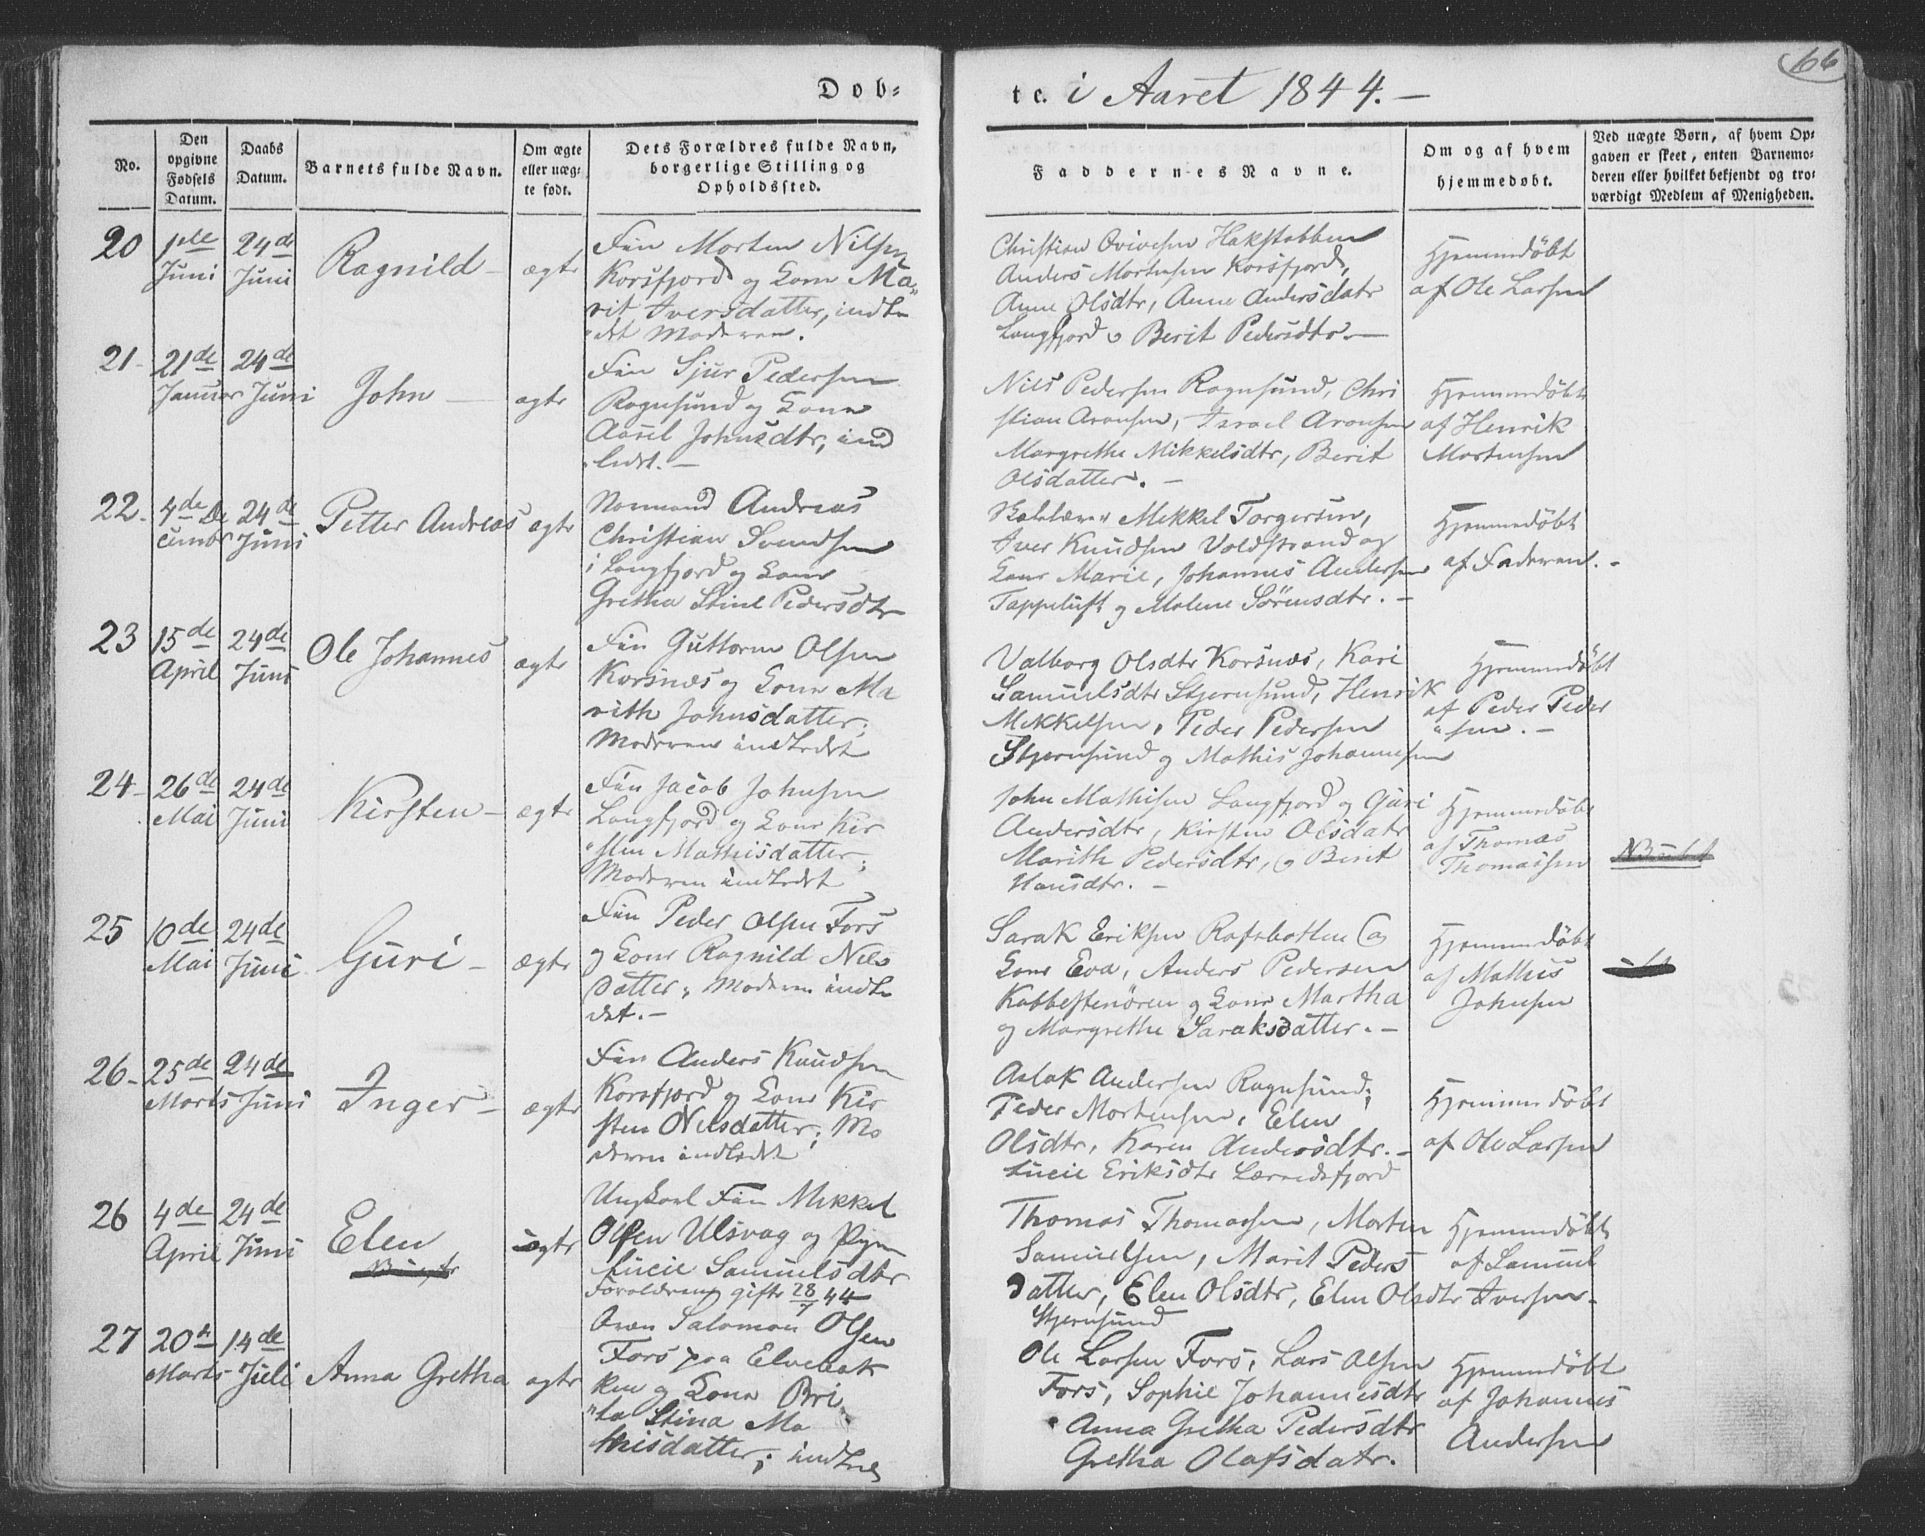 Døb=
te. i Aaret 1844. —
66
No.
Den opgivne Fødsels Datum.
Daabs Datum.
Barnets fulde Navn.
Om ægte eller uæg- te født.
Dets Forældres fulde Navn, borgerlige Stilling og Opholdssted.
Faddernes Navne.
Om og af hvem hjemmedøbt.
Ved uægte Børn, af hvem Op- gaven er skeet, enten Barnemo- deren eller hvilket bekjendt og tro- værdigt Medlem af Menigheden.
20
1ste Juni
24de Juni
Ragnild —
ægte
Fin Morten Nilsen
Korsfjord og Kone Ma"
rit Iversdatter, indle
"det Moderen.
Christian
Anders Mortensen Korsfjord,
Anne Olsdtr, Anne Andersdatr
Langfjord o Berit Pedersdtr. —
Hjemmedøbt
af Ole Larsen
21 -
21de Januar
24de Juni
John —
ægte
Fin Sjur Pedersen
Rognsund og Kone
Johnsdtr, ind
"ledt. —
Nils Pedersen Rognsund, Chri
stian Aronsen, Israel Aronsen
Margrethe Mikkelsdtr, Berit
Olsdatter. —
Hjemmedøbt
af Henrik
Mortensen
22 -
4de De cembr
24de Juni
Petter Andreas
ægte
Normand Andreas
Christian Svendsen
i Langfjord og Kone
Gretha Stine Pedersdtr
Mikkel Torgersen,
Iver Knudsen Voldstrand og
Kone Marie, Johannes Andersen
Tappeluft og Malene Sørensdtr. —
Hjemmedøbt
af Faderen. -
23
15de April
24de Juni
Ole Johannes
ægte
Fin Guttorm Olsen
Korsnæs og Kone Ma
rith Johnsdatter,
Moderen indledet
Valborg Olsdtr Korsnæs, Kari
Samuelsdtr Stjernsund, Henrik
Mikkelsen, Peder Pedersen
Stjernsund og Mathis Johannesen
Hjemmedøbt
af Peder Peder
"sen. —
24 -
26de Mai
24de Juni
Kirsten —
ægte
Fin Jacob Johnsen
Langfjord og Kone Kir
"sten Mathisdatter;
Moderen indledet
John Mathisen Langfjord og Guri
Andersdtr, Kirsten Olsdatr
Marith Pedersdtr, o Berit
Hansdtr. —
Hjemmedøbt
af Thomas
Thomassen
25
10de Mai
24de Juni
Guri —
ægte
Fin Peder Olsen Fors
og Kone Ragnild Nils
Datter, Moderen indle
det. —
Sarak Eriksen Rafsbotten og
Kone Eva, Anders Pedersen
Kabbestenøren og Kone Martha
og Margrethe Saraksdatter. —
Hjemmedøbt
af Mathis
Johnsen
26 -
25de Marts
24de Juni
Inger —
ægte
Fin Anders Knudsen
Korsfjord og Kone Kir
sten Nilsdatter; Mo
deren indledet
Aslak Andersen Rognsund,
Peder Mortensen, Elen
Olsdtr, Karen Andersdtr. —
Lucie Eriksdtr Lærredsfjord
Hjemmedøbt
af Ole Larsen
26
4de April
24de Juni
Elen
uægte
Ungkarl Fin Mikkel
Olsen Ulsvag og Pigen
Lucie Samuelsdtr
Forældrene gifte 28/7 44
Thomas Thomassen, Morten
Samuelsen, Marit Peders
Datter, Elen Olsdtr, Elen Olsdtr
Stjernsund
Hjemmedøbt
af Samuel
Iversen -
27
20de Marts
14de Juli
Anna Gretha
ægte
Qvæn Salomon Olsen
Fors paa Elvebak
ken og Kone Bri
"ta Stina Ma
thisdatter; indled
Ole Larsen Fors, Lars Olsen
Fors, Sophie Johannesdtr
Anna Gretha Pedersdtr
Gretha Olafsdatr.
Hjemmedøbt
af Johannes
Andersen